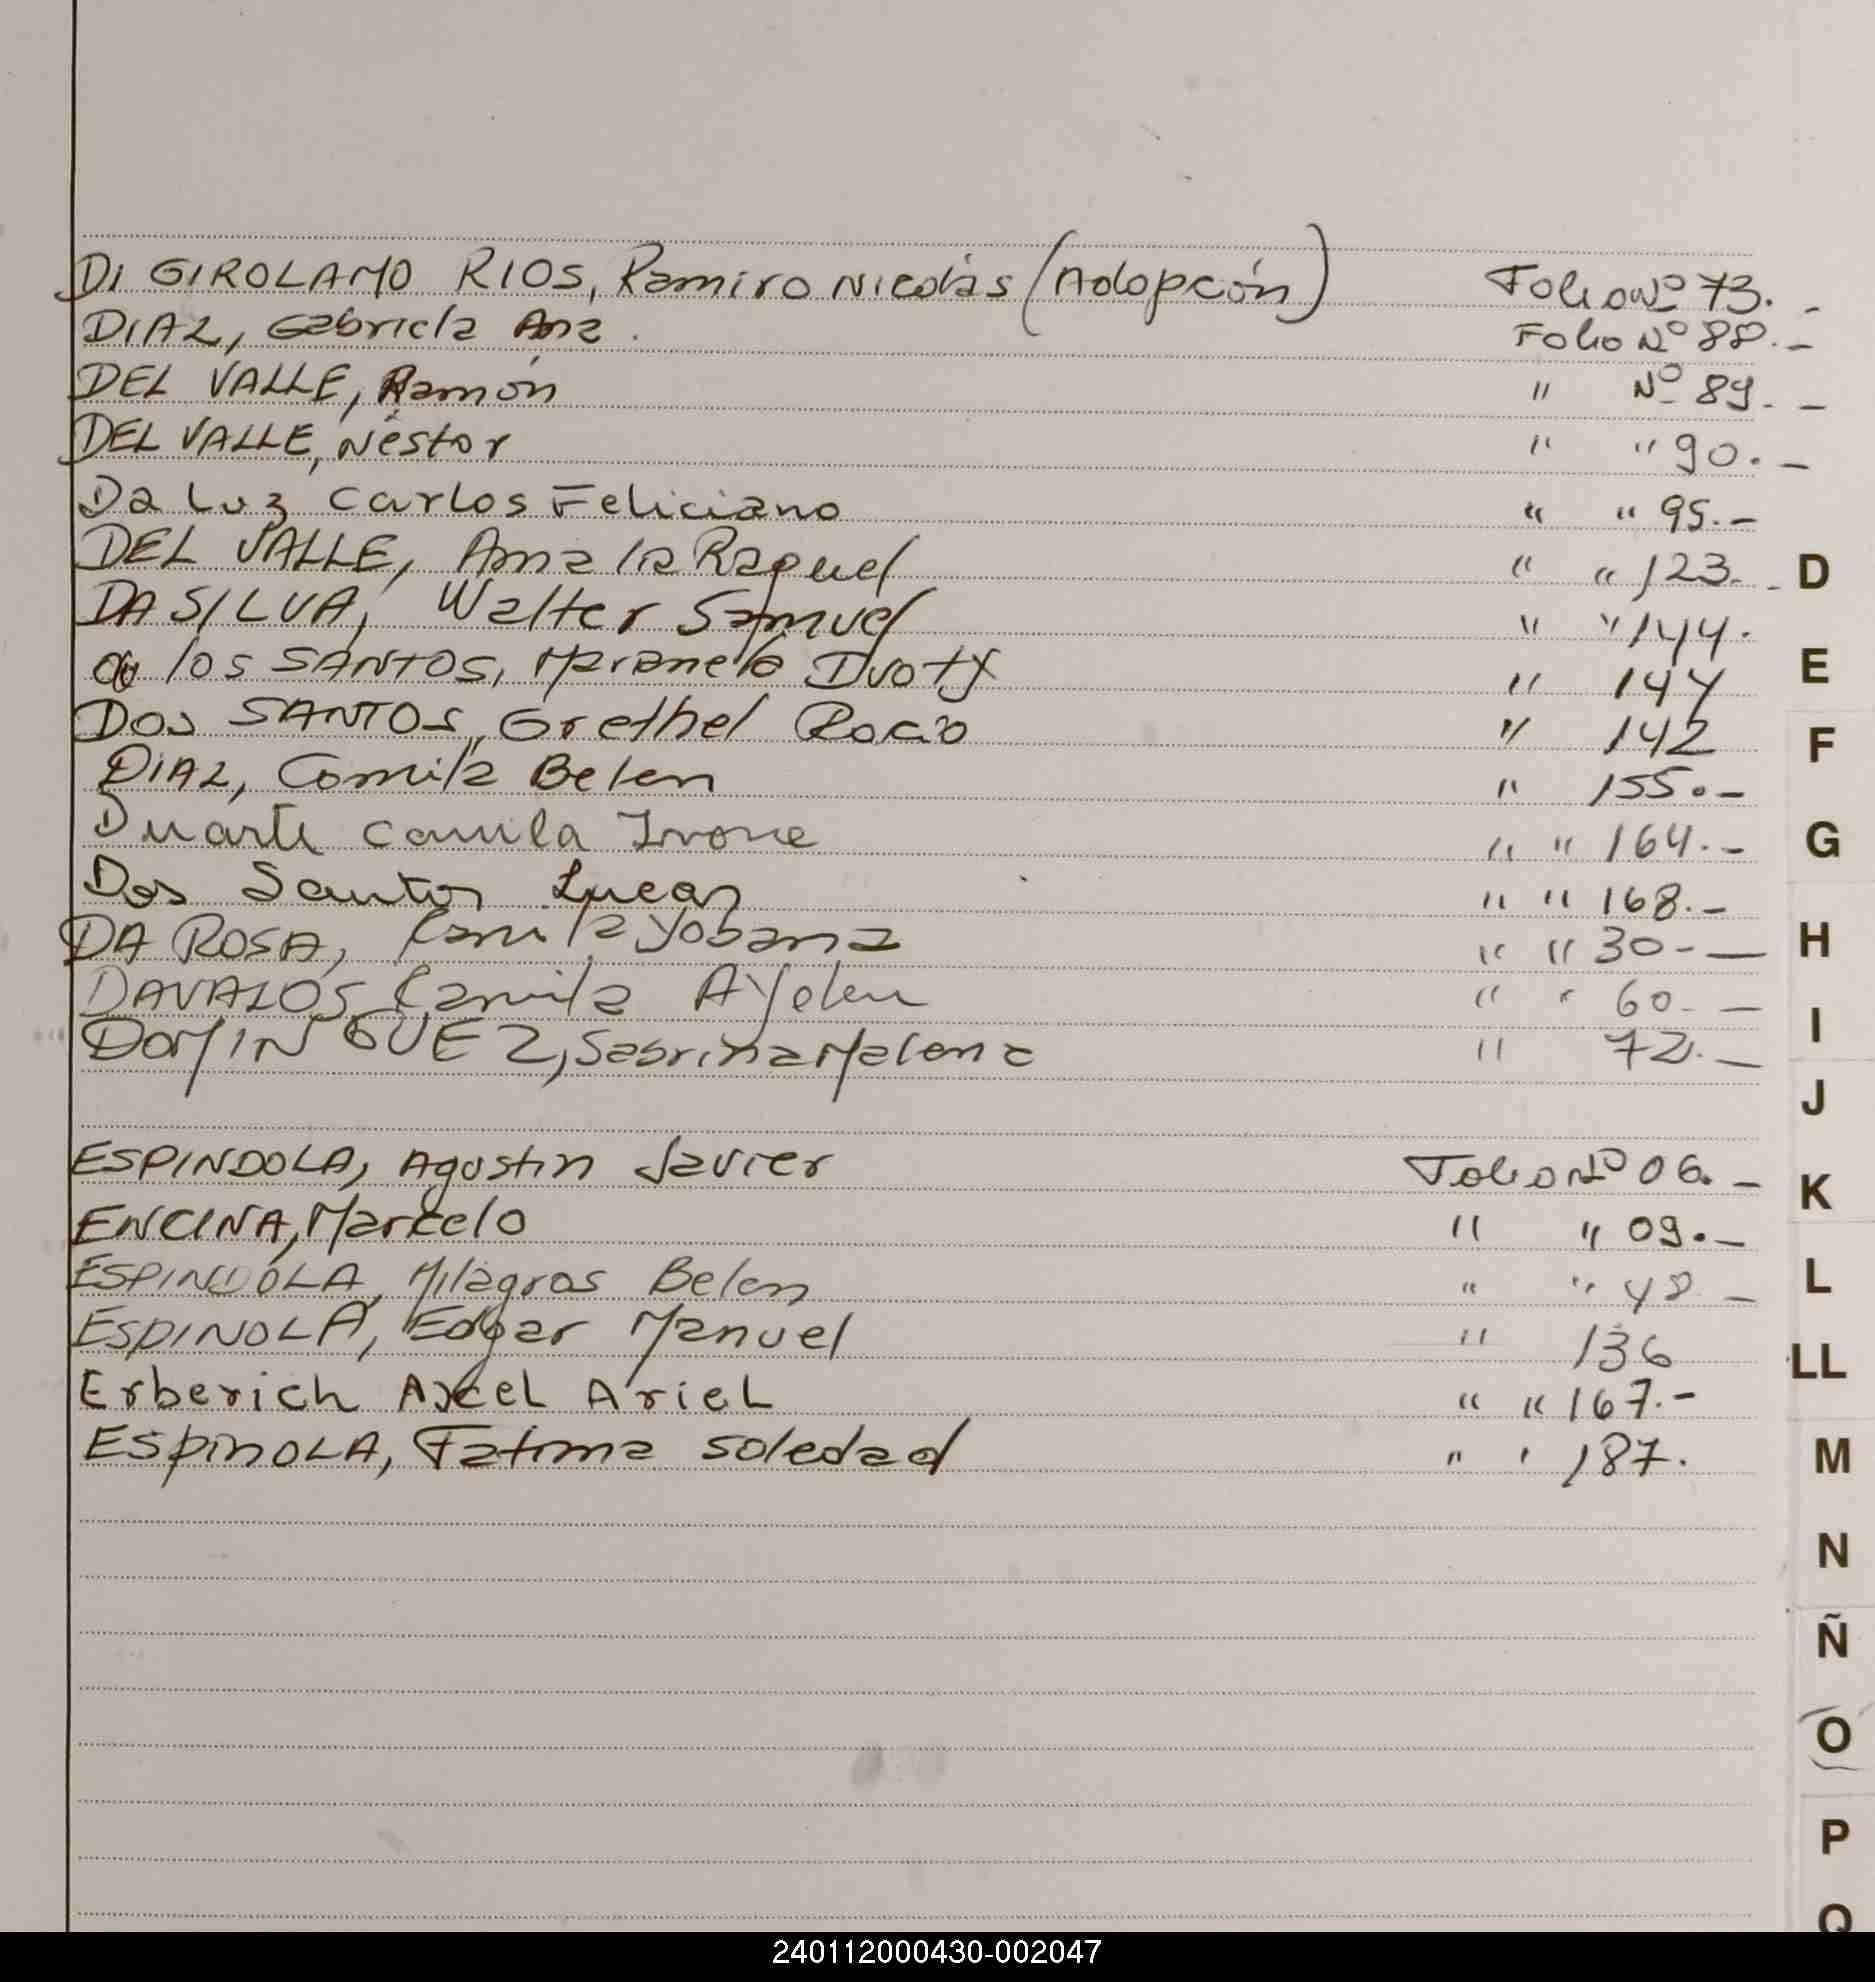 DI GIROLAMO RIOS, Ramiro Nicolás (Adopción) Folio Nº 73.-
DIAZ, Gabriela Ana. Folio Nº 88.-
DEL VALLE, Ramón " Nº 89.-
DEL VALLE, Néstor " " 90.-
Da Luz Carlos Feliciano " " 95.-
DEL VALLE, Amalia Raquel " " 123.-
DA SILVA, Walter Samuel " " 144.
de los SANTOS, Marianela Ivoty " 147
Dos SANTOS, Grethel Rocio " 142
DIAZ, Camila Belen " 155.-
Duarte Camila Ivone " " 164.-
Dos Santos Lucas " " 168.-
DA ROSA, Camila Yobana " " 30.-
DAVALOS, Camila Ayelen " " 60.-
DOMINGUEZ, Sabrina Malena " 72.-
ESPINDOLA, Agustin Javier Folio Nº 06.-
ENCINA, Marcelo " " 09.-
ESPINDOLA, Milagros Belen " " 48.-
ESPINOLA, Edgar Manuel " 136
Erberich Axcel Ariel " " 167.-
ESPINOLA, Fatima Soledad " " 187.
D
E
F
G
H
I
J
K
L
LL
M
N
Ñ
O
P
Q
240112000430-002047